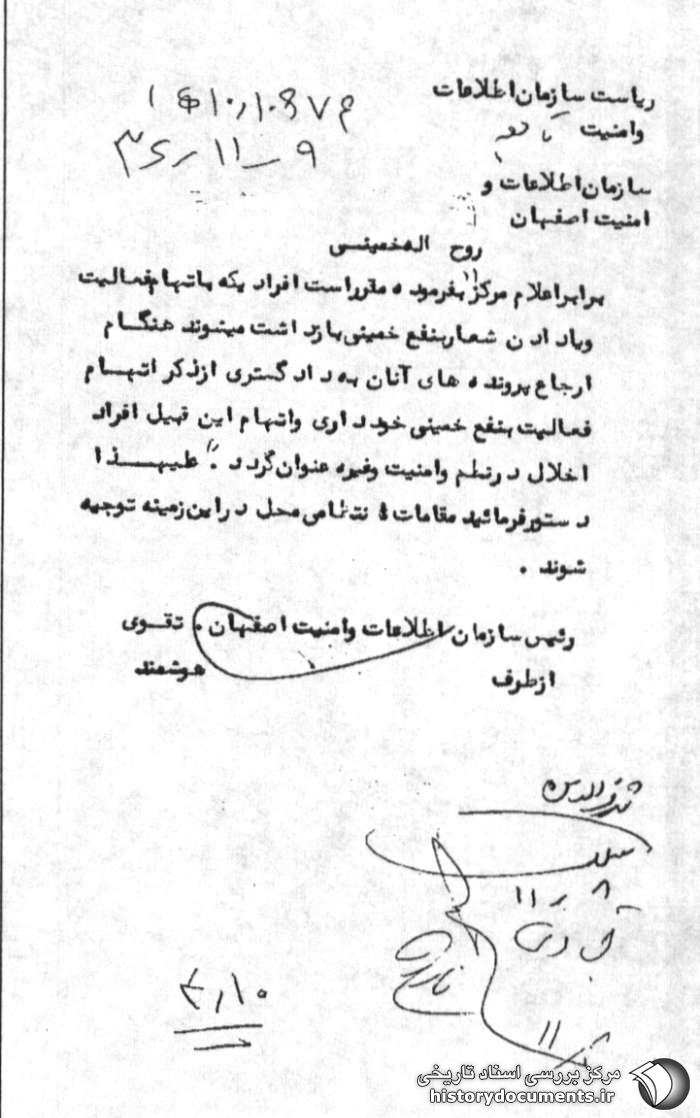 ریاست سازمان اطلاعات
وامنیت
۱۰٫۱۰۸۷۳
۹ ـ ۱۱ ر ۳۶
سازمان اطلاعات و
امنیت اصفهان
روح اله خمینی
برابر اعلام مرکز بفرموده مقرراست افراد یکه باتهام فعالیت
ویادادن شعار بنفع خمینی بازداشت میشوند هنگام
ارجاع پرونده های آنان به دادگستری از ذکر اتهام
فعالیت بنفع خمینی خودداری واتهام این قبیل افراد
اخلال درنظم وامنیت وغیره عنوان گردد . علیهذا
دستورفرمائید مقامات انتظامی محل دراین زمینه توجیه
شوند .
رئیس سازمان اطلاعات وامنیت اصفهان . تقوی
ازطرف هوشمند
۱۱
۱۱
مرکز بررسی اسناد تاریخی
historydocuments.ir